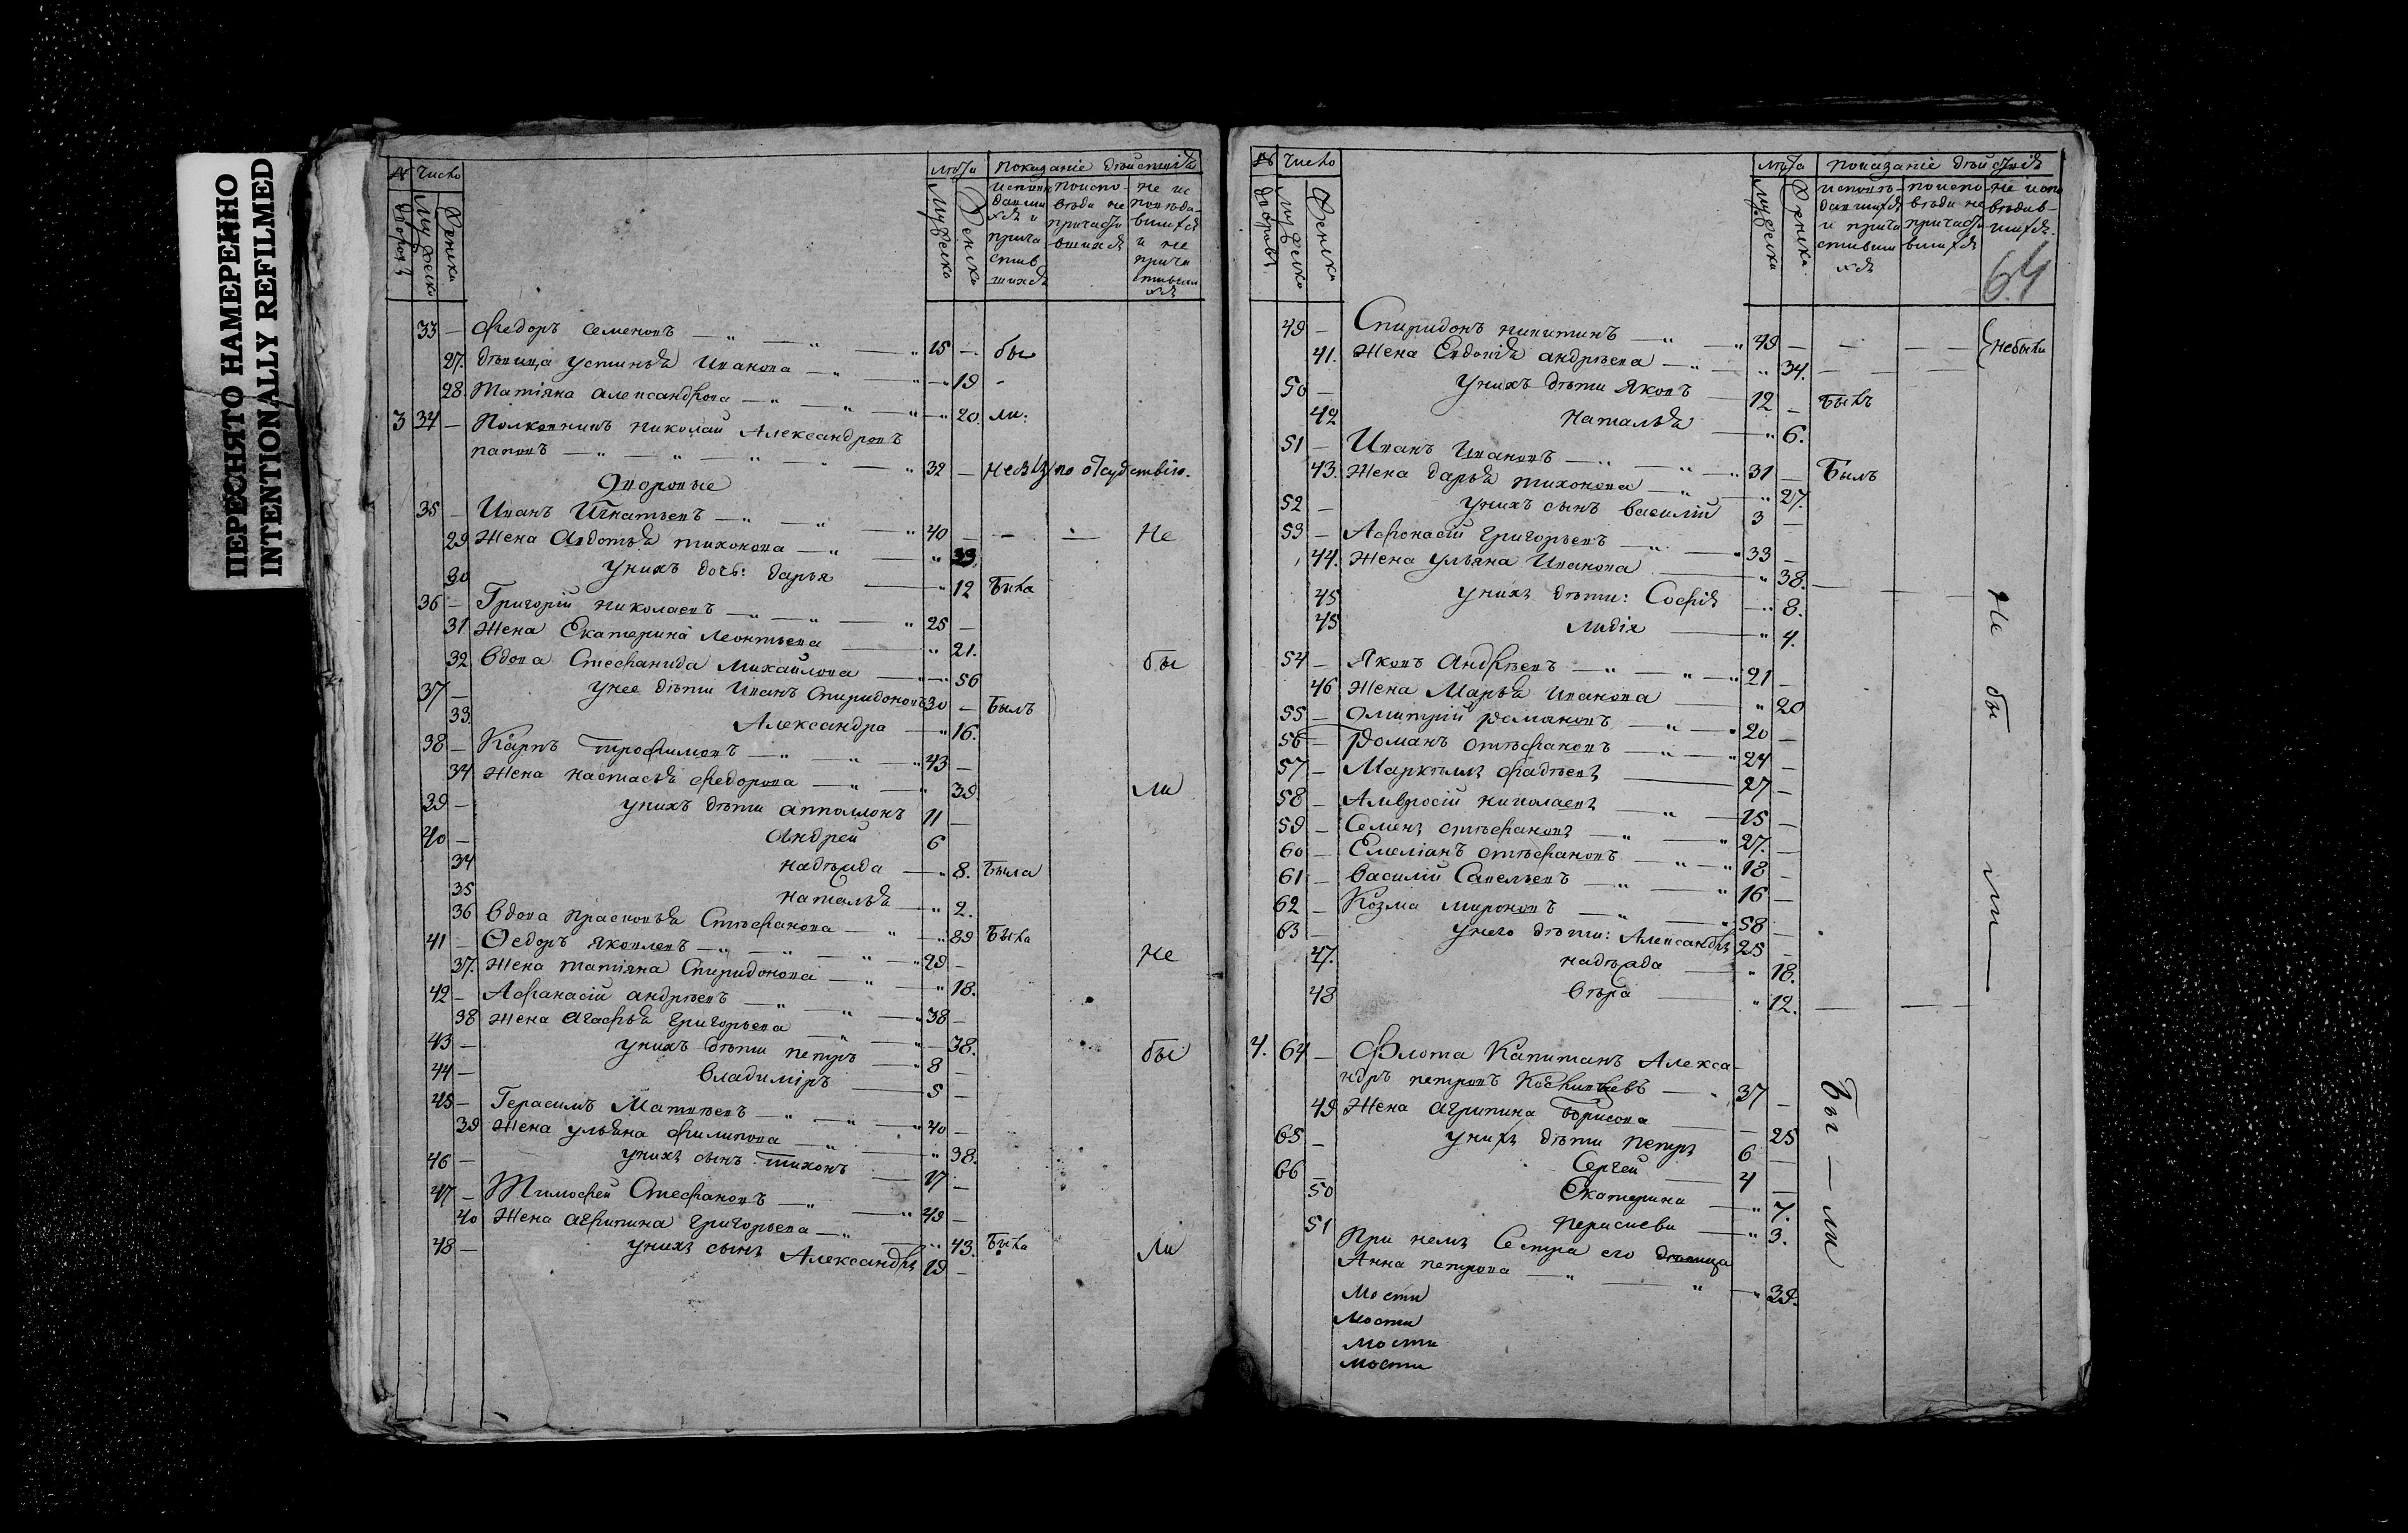 ПЕРЕСНЯТО НАМЕРЕННО
INTENTIONALLY REFILMED
№ Число лѣта показаніе дѣйствія
дворовъ Мужеска Женска Мужеска Женска
33 — Федоръ Семеновъ 15 — бы
27. дѣвица устинья Иванова 19 -
28. Татіяна александрова 20. ли:
3 34 — Полковникъ николай Александровъ
поповъ 32 — по отсудствію.
Дворовые
35 — Иванъ Игнатьевъ 40 — Не
29 Жена Авдотья тихонова 33
30 унихъ дочь: дарья 12 Была
36 — Григорій николаевъ 25 —
31 Жена Екатерина леонтьева 21.
32 вдова Стефанида Михайлова 56 бы
37 — унее дѣти Иванъ Спиридоновъ 30 — Былъ
33 Александра 16.
38 — Карпъ трофимовъ 43 —
34 Жена настасья федорова 39 ли
39 — унихъ дѣти апполонъ 11 —
40 — Андрей 6
34 надѣжда 8. Была
35 наталья 2.
36 вдова прасковья Стѣфанова 89 Была
41 — Ѳедоръ яковлевъ 29 — Не
37. Жена татіяна Спиридонова 18.
42 — Афанасій андрѣевъ 38 —
38 Жена агафья григорьева 38.
43 — унихъ дѣти петръ 8 — бы
44 — владиміръ 5 —
45 — Герасимъ Матвѣевъ 40 —
39 Жена ульяна филипова 38.
46 — унихъ сынъ тихонъ 17 —
47 — Тимофей Стефановъ 49 —
40 Жена агрипина григорьева 43. Была ли
48 — унихъ сынъ Александръ 19 —
№ Число лѣта показаніе дѣйствія
дворовъ Мужеска Женска Мужеска Женска
64
49 — Спиридонъ никитинъ 49 — небыли
41. Жена Евдокія андрѣева 34.
50 — унихъ дѣти яковъ 12 — Былъ
42 наталья 6.
51 — Иванъ Ивановъ 31 — Былъ
43. Жена дарья тихонова 27.
52 — унихъ сынъ василій 3 —
53 — Афонасій григорьевъ 33 —
44. Жена ульяна Иванова 38.
45 унихъ дѣти: Софія 8.
45 лидія 4.
Не бы ли
54 — Яковъ андрѣевъ 21 —
46 Жена Марья иванова 20
55 — Дмитрій романовъ 20 —
56 — Романъ стѣфановъ 24 —
57 — Маркѣлъ фадѣевъ 27 —
58 — Амвросій николаевъ 15 —
59 — Семенъ стѣфановъ 27. —
60 — Емеліанъ стѣфановъ 18 —
61 — василій Савельевъ 16 —
62 — Козма мироновъ 58 —
63 — унего дѣти: Александръ 25 —
47. надѣжда 18.
48 вѣра 12.
4. 64 — Флота Капитанъ Алекса-
ндръ петровъ 37 —
49 Жена агрипина борисова 25
65 — унихъ дѣти петръ 6 —
66 — Сергей 4 —
50 Екатерина 7.
51 3.
При немъ Сестра его девица
Анна петрова 39.
Бы — ли
Мости
Мости
мости
мости